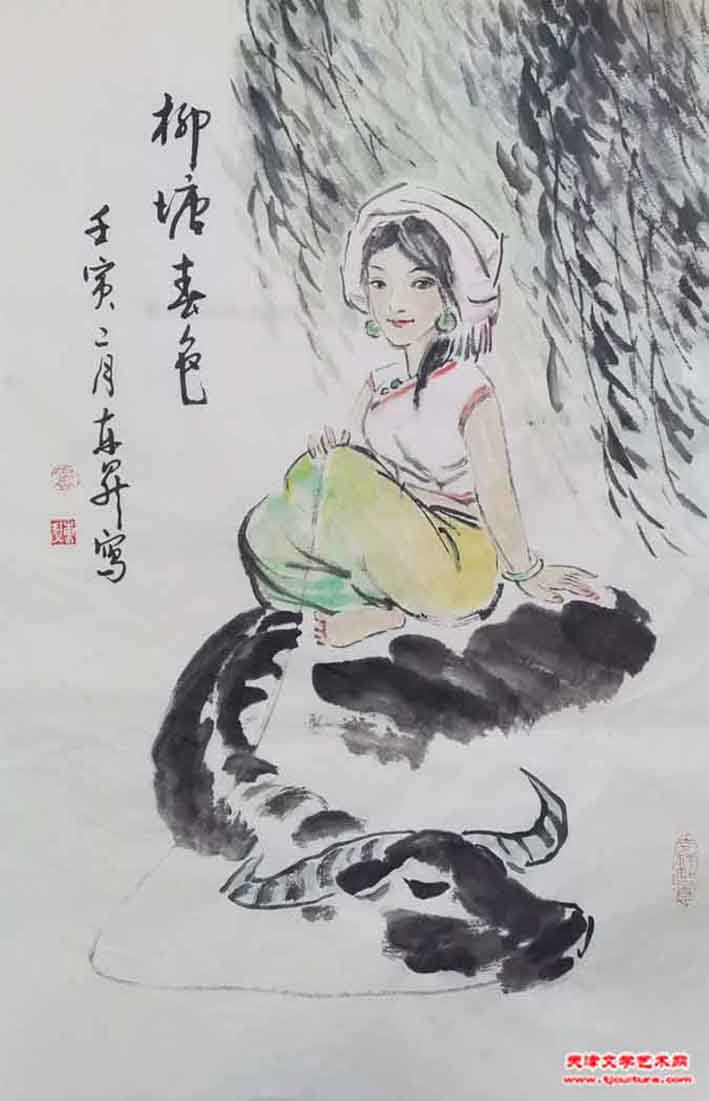 柳塘春色
壬寅二月东昇写
天津文学艺术网
www.tjculture.com